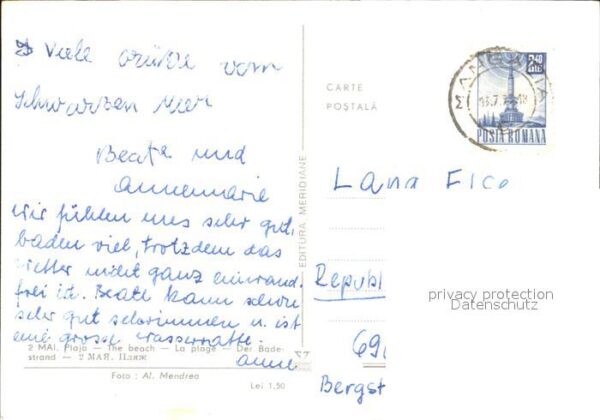 Viele Grüße vom
Schwarzen Meer
Beate und
Annemarie
Wir fühlen uns sehr gut,
baden viel, trotzdem das
Wetter nicht ganz einwand-
frei ist. Beate kann schon
sehr gut schwimmen u. ist
eine grosse Wasserratte.
Anne
2 MAI. Plaja — The beach — La plage — Der Bade-
strand — 2 МАЯ. Пляж
Foto: Al. Mendrea
Lei 1,50
EDITURA MERIDIANE
CARTE
POȘTALĂ
MANGALIA
2,40
LEI
POSTA ROMANA
Lana Fico
Republ
privacy protection
Datenschutz
69
Bergst